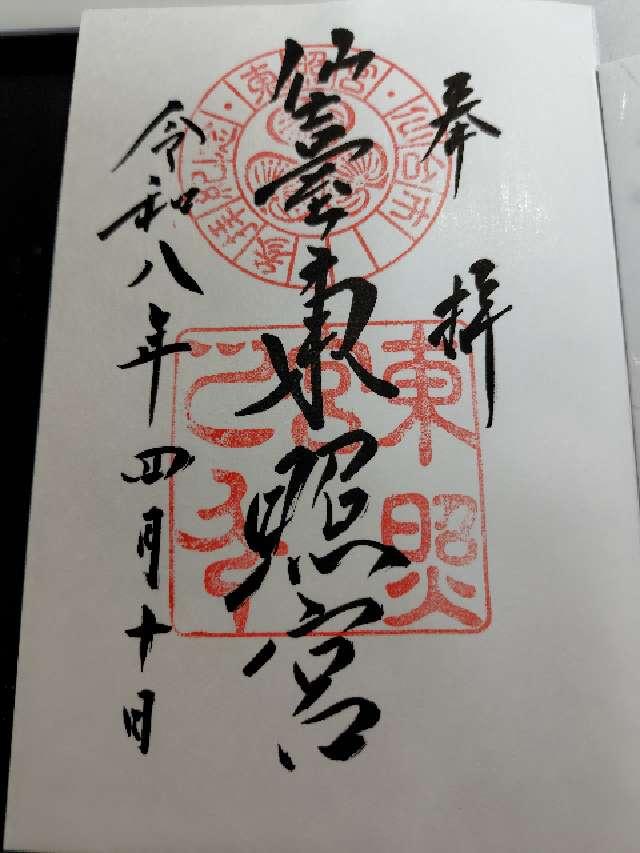 奉拝
仙臺東照宮
令和八年四月十日
東照宮